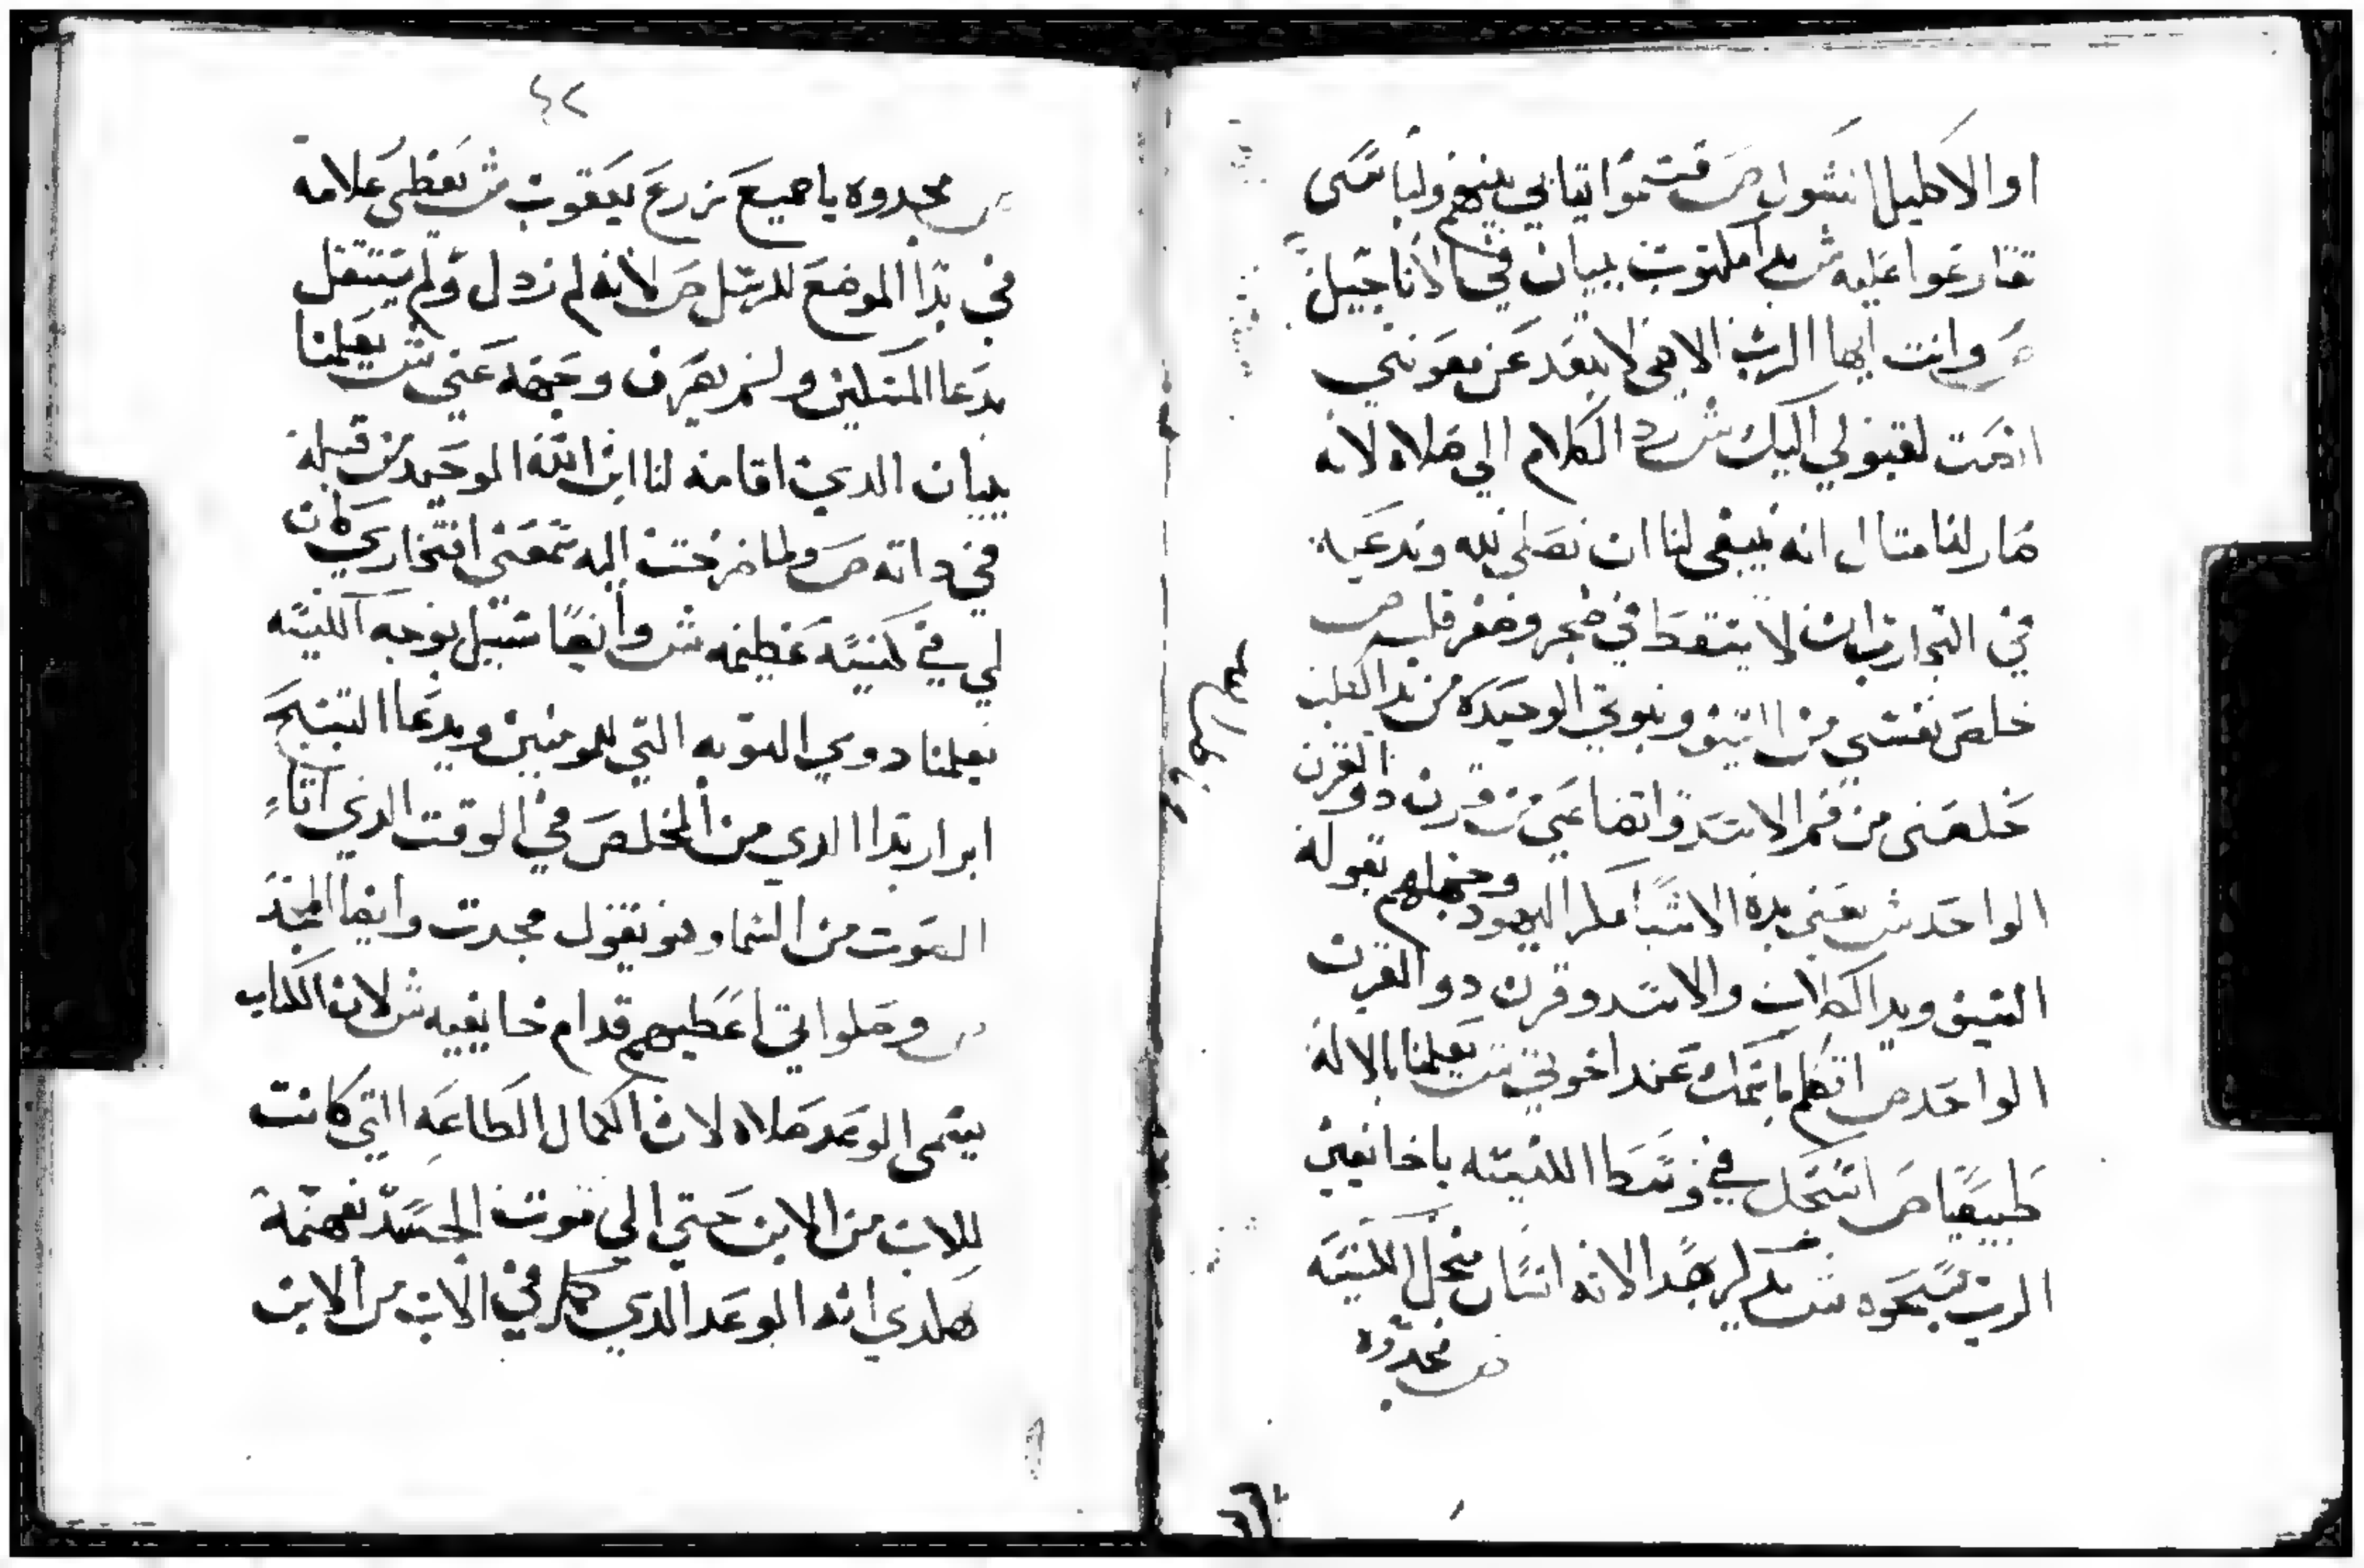 او الاكليل الشول ص قسموا تيابي بينهم ولباسي
تقارعوا عليه ش هدا مكتوب ببيان في الاناجيل
ص وانت ايها الرب الاهي لا تبعد عن معونتي
انصت لقبولي اليك ش رد الكلام الي صلاه لانه
صار لنا متال انه ينبغي لنا ان نصلي لله وندعيه
في التجارب ان لا يسقط في ضجر وصغر قلب ص
خلص نفسي من السيف وبنوتي الوحيده من يد الكلب
خلصني من فم الاسد واتضاعي من قرن دو القرن
الواحد ش يعني بهده الاشيا مكر اليهود وجهلهم بقوله
السيف ويد الكلاب والاسد وقرن دو القرن
الواحد ص اتكلم باسمك عند اخوتي ش يعلمنا بالاله
طبيعيا ص اسبحك في وسط الكنيسه يا خايفين
الرب سبحوه ش يدكر هدا لانه انسان سجل الكنيسه
ص مجدوه
٤٢
ص مجدوه يا جميع زرع يعقوب ش يعطي علامه
في هدا الموضع للرسل ص لانه لم يردل ولم يتتقل
بدعا المتكلين ولم يصرف وجهه عني ش يعلمنا
ببيان الدي اقامه لنا ابن الله الوحيد من قبله
في داته ص ولما صرخت اليه سمعني افتخاري كان
لي في كنيسه عظيمه ش وايضا سبيل بوجه الكنيسه
يعلمنا دوي التوبه التي للمومنين ويدعا التسبيح
ابرار هدا الدي من المخلص في الوقت الدي اتاه
الصوت من السما وهو يقول مجدت وايضا امجد
ص وصلواتي اعطيهم قدام خايفيه ش لان الكتاب
يسمي الوعد صلاه لان الكمال الطاعه التي كانت
للاب من الابن حتي الي موت الجسد نفهمه
هكدي انه الوعد الدي كمل في الاب من الابن